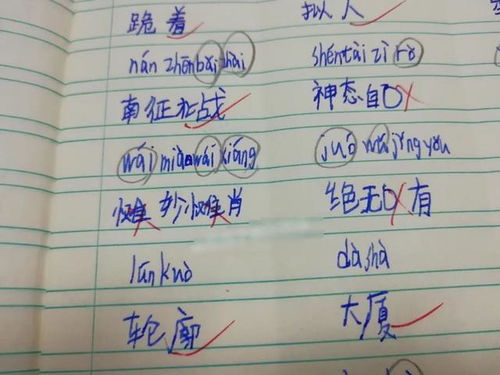 跪着 拟人
nán zhēn běi zhài shéntài zì rò
南征北战 神态自
wái miào wái xiāng juó wú jǐng yǒu
妙 肖 绝无 有
lúnkuò dàshà
轮廓 大厦